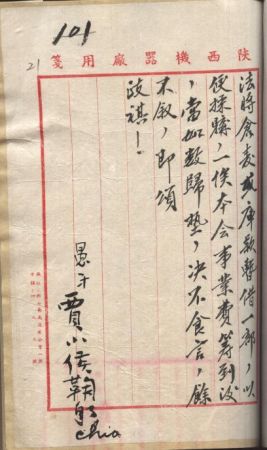 101
21
陕西機器廠用箋
法將倉麦或庫款暫借一部，以
便採購，一俟本会事業費筹到後
，當如数歸墊，决不食言，餘
不叙，即頌
政祺！
愚于
賈小侯鞠躬
chia